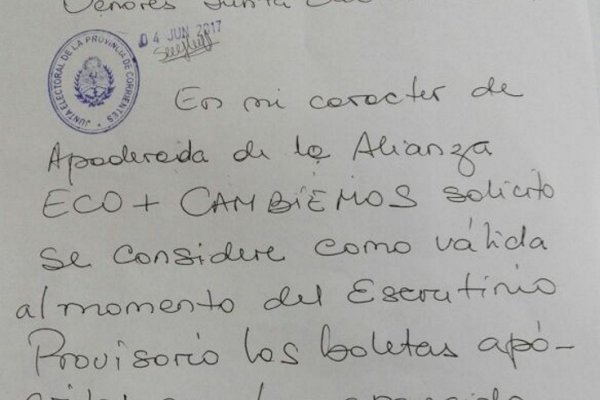 Señores Junta
04 JUN 2017
JUNTA ELECTORAL DE LA PROVINCIA DE CORRIENTES
En mi caracter de
Apoderada de la Alianza
ECO + CAMBIEMOS solicito
se considere como válida
al momento del Escrutinio
Provisorio las boletas apó-